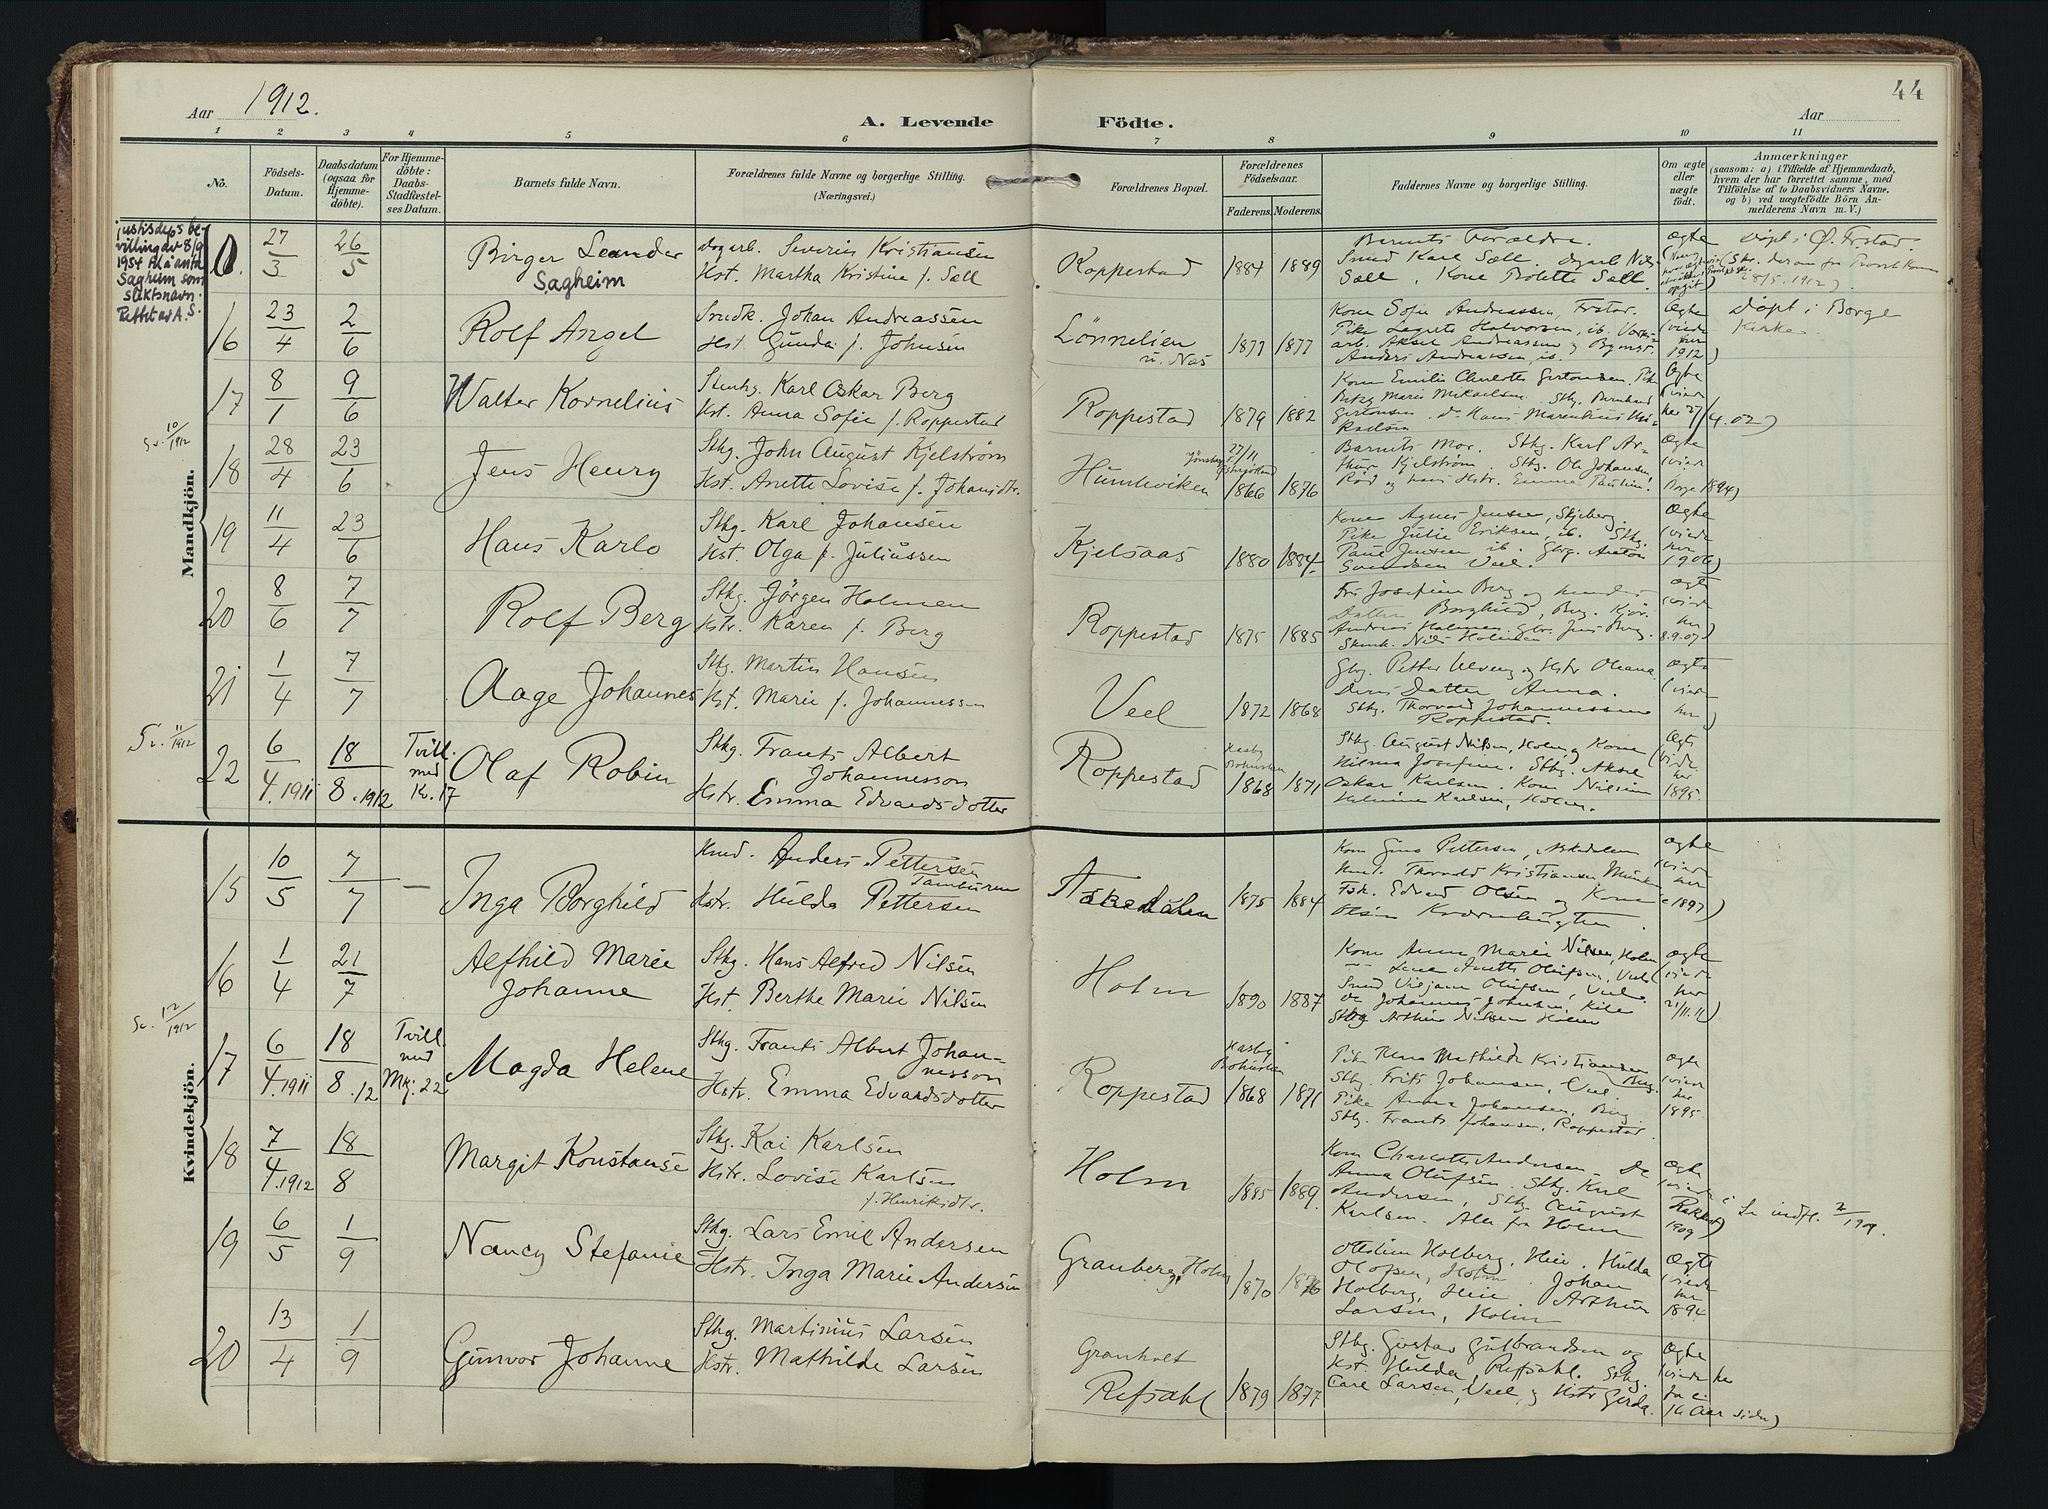 44
Aar 1912.
A. Levende Födte.
Aar
1 2 3 4 5 6 7 8 9 10 11
No.
Födsels-Datum.
Daabsdatum (ogsaa for Hjemme-döbte).
For Hjemme-döbte: Daabs-Stadfæstel-ses Datum.
Barnets fulde Navn.
Forældrenes fulde Navne og borgerlige Stilling.
(Næringsvei.)
Forældrenes Bopæl.
Forældrenes Födselsaar.
Faderens. Moderens.
Faddernes Navne og borgerlige Stilling.
Om ægte eller uægte födt.
Anmærkninger
(saasom: a) i Tilfælde af Hjemmedaab,
hvem der har forrettet samme, med
Tilföielse af to Daabsvidners Navne,
og b) ved uægtefödte Börn An-
melderens Navn m. V.)
Mandkjön.
justisdeps be-
villing av 8/9
1954 til å anta
Sagheim som
slektsnavn.
Rettet av A.S.
0. 27/3 26/5 Birger Leander
Sagheim
Severin Kristiansen
Hst. Martha Kristine f. Sall
Roppestad 1884 1889
Barnets Forældre.
Smed Karl Sall.
Sall, Kone Bolette Sall
Ægte
Døpt i Ø. Frstad.
28/5. 1912)
16 23/4 2/6 Rolf Angel
Smdk. Johan Andreassen
Hst. Gunda f. Johnsen
Lönnelien
u. Nås 1877 1877
Kone Sofie Andreassen, Frstad.
arb. Aksel Andreassen
Anders Andreassen, ib.
Ægte
(viede
her
1912)
Døpt i Borge
Kirke
17 8/1 9/6 Walter Kornelius
Stenhg. Karl Oskar Berg
Hst. Anna Sofie f. Roppestad
Roppestad 1879 1882
Kone Emilie Charlotte Gertonsen. Pike
Ægte
(viede
her 27/4.02)
Sv. 10/1912
18 28/4 23/6 Jens Henry
Sthg. John August Kjelström
Hst. Anette Lovise f. Johansdtr.
Humleviken
27/11
1866 1876
Barnets Mor. Sthg. Karl Ar-
thur Kjelström. Sthg. Ole Johansen,
Rød og hans Hstr. Emma Pauline.
Ægte
(viede
Borge 1894)
19 11/4 23/6 Hans Karlo
Sthg. Karl Johansen
Hst. Olga f. Juliussen
Kjelsaas 1880 1884.
Kone Agnes Jensen, Skjeberg.
Pike Julie Eriksen, ib. Sthg.
Paul Jensen ib. Gbrg. Anton
Svendsen Veel.
Ægte
(viede
her
1906)
20 8/6 7/7 Rolf Berg
Sthg. Jörgen Holmen
Hstr. Karen f. Berg
Roppestad 1875 1885
Fru Josefine Berg og hendes
Datter Borghild, Berg.
Andreas Holmen. Gbr. Jens Berg.
Nils Holmen
Ægte
(viede
her
8.9.07)
21 1/4 7/7 Aage Johannes
Sthg. Martin Hansen
Hst. Marie f. Johannessen
Veel 1872 1868
Gbg. Petter Ulveng og Hstr Oleana
Deres Datter Anna.
Sthg. Thorvald Johannessen
Roppestad.
Ægte
(viede
her)
Sv. 11/1912
22 6/4.1911 18/8.1912
Tvill.
med
Kv. 17
Olaf Robin
Sthg. Frants Albert
Johannesson
Hstr. Emma Edvardsdotter
Roppestad
1868 1871
Sthg. August Nilsen, Holm og Kone
Hilma Josefine. Sthg. Aksel
Oskar Karlsen. Kone Nilsine
Helmine Karlsen, Holm.
Ægte
(viede
her
1895.
Kvindekjön.
15 10/5 7/7 — Inga Borghild
Anders Pettersen
Hstr. Hulda Pettersen
Askedalen 1875 1884
Kone Gina Pettersen, Askedalen
Thorvald Kristiansen
Fsk. Edvard Olsen og Kone
Ægte
(viede
her
1897)
16 1/4 21/7 Alfhild Marie
Johanne
Sthg. Hans Alfred Nilsen
Hst. Berthe Marie Nilsen
Holm 1890 1887
Kone Anna Marie Nilsen, Holm
Lene Anette Olufsen, Veel
Smed Viljam Olufsen, Veel.
Do Johannes Johnsen, Kile
Sthg Arthur Nilsen Holm
Ægte
(viede
her
21/11.11)
Sv. 12/1912
17 6/4.1911 18/8.12
Tvill.
med
Mk: 22
Magda Helene
Sthg. Frants Albert Johan-
nesson
Hstr. Emma Edvardsdotter
Roppestad
1868 1871
Pike Klara Mathilde Kristiansen
Berg.
Sthg. Frits Johansen, Veel.
Pike Anna Johansen, Berg.
Sthg. Frants Johansen, Roppestad.
Ægte
(viede
her
1895.
18 7/4.1912 18/8 Margit Konstanse
Sthg. Kai Karlsen
Hstr. Lovise Karlsen
f. Henriksdtr.
Holm 1885 1889.
Kone Charlotte Andersen. Do
Anna Olufsen. Sthg. Karl
Andersen, Sthg. August
Karlsen. Alle fra Holm
Ægte
(viede i
Rakkest)
1909
Se indfl. 2/1909.
19 6/5 1/9 Nancy Stefanie
Sthg. Lars Emil Andersen
Hstr. Inga Marie Andersen
Granberg, Holm
1870 1876
Ottilie Holberg, Heie. Hulda
Olofsen, Holm. Johan
Holberg, Heie Arthur
Larsen, Holm
Ægte
(viede
her
1894
20 13/4 1/9 Gunvor Johanne
Sthg. Martinius Larsen
Hstr. Mathilde Larsen
Granholt
Refsahl 1879 1877
Sthg. Gustav Gulbrandsen og
Hst. Hulda, Refsahl. Sthg.
Carl Larsen, Veel, og Hstr Gerda.
Ægte
(viede her
for ei
14 Aar siden)